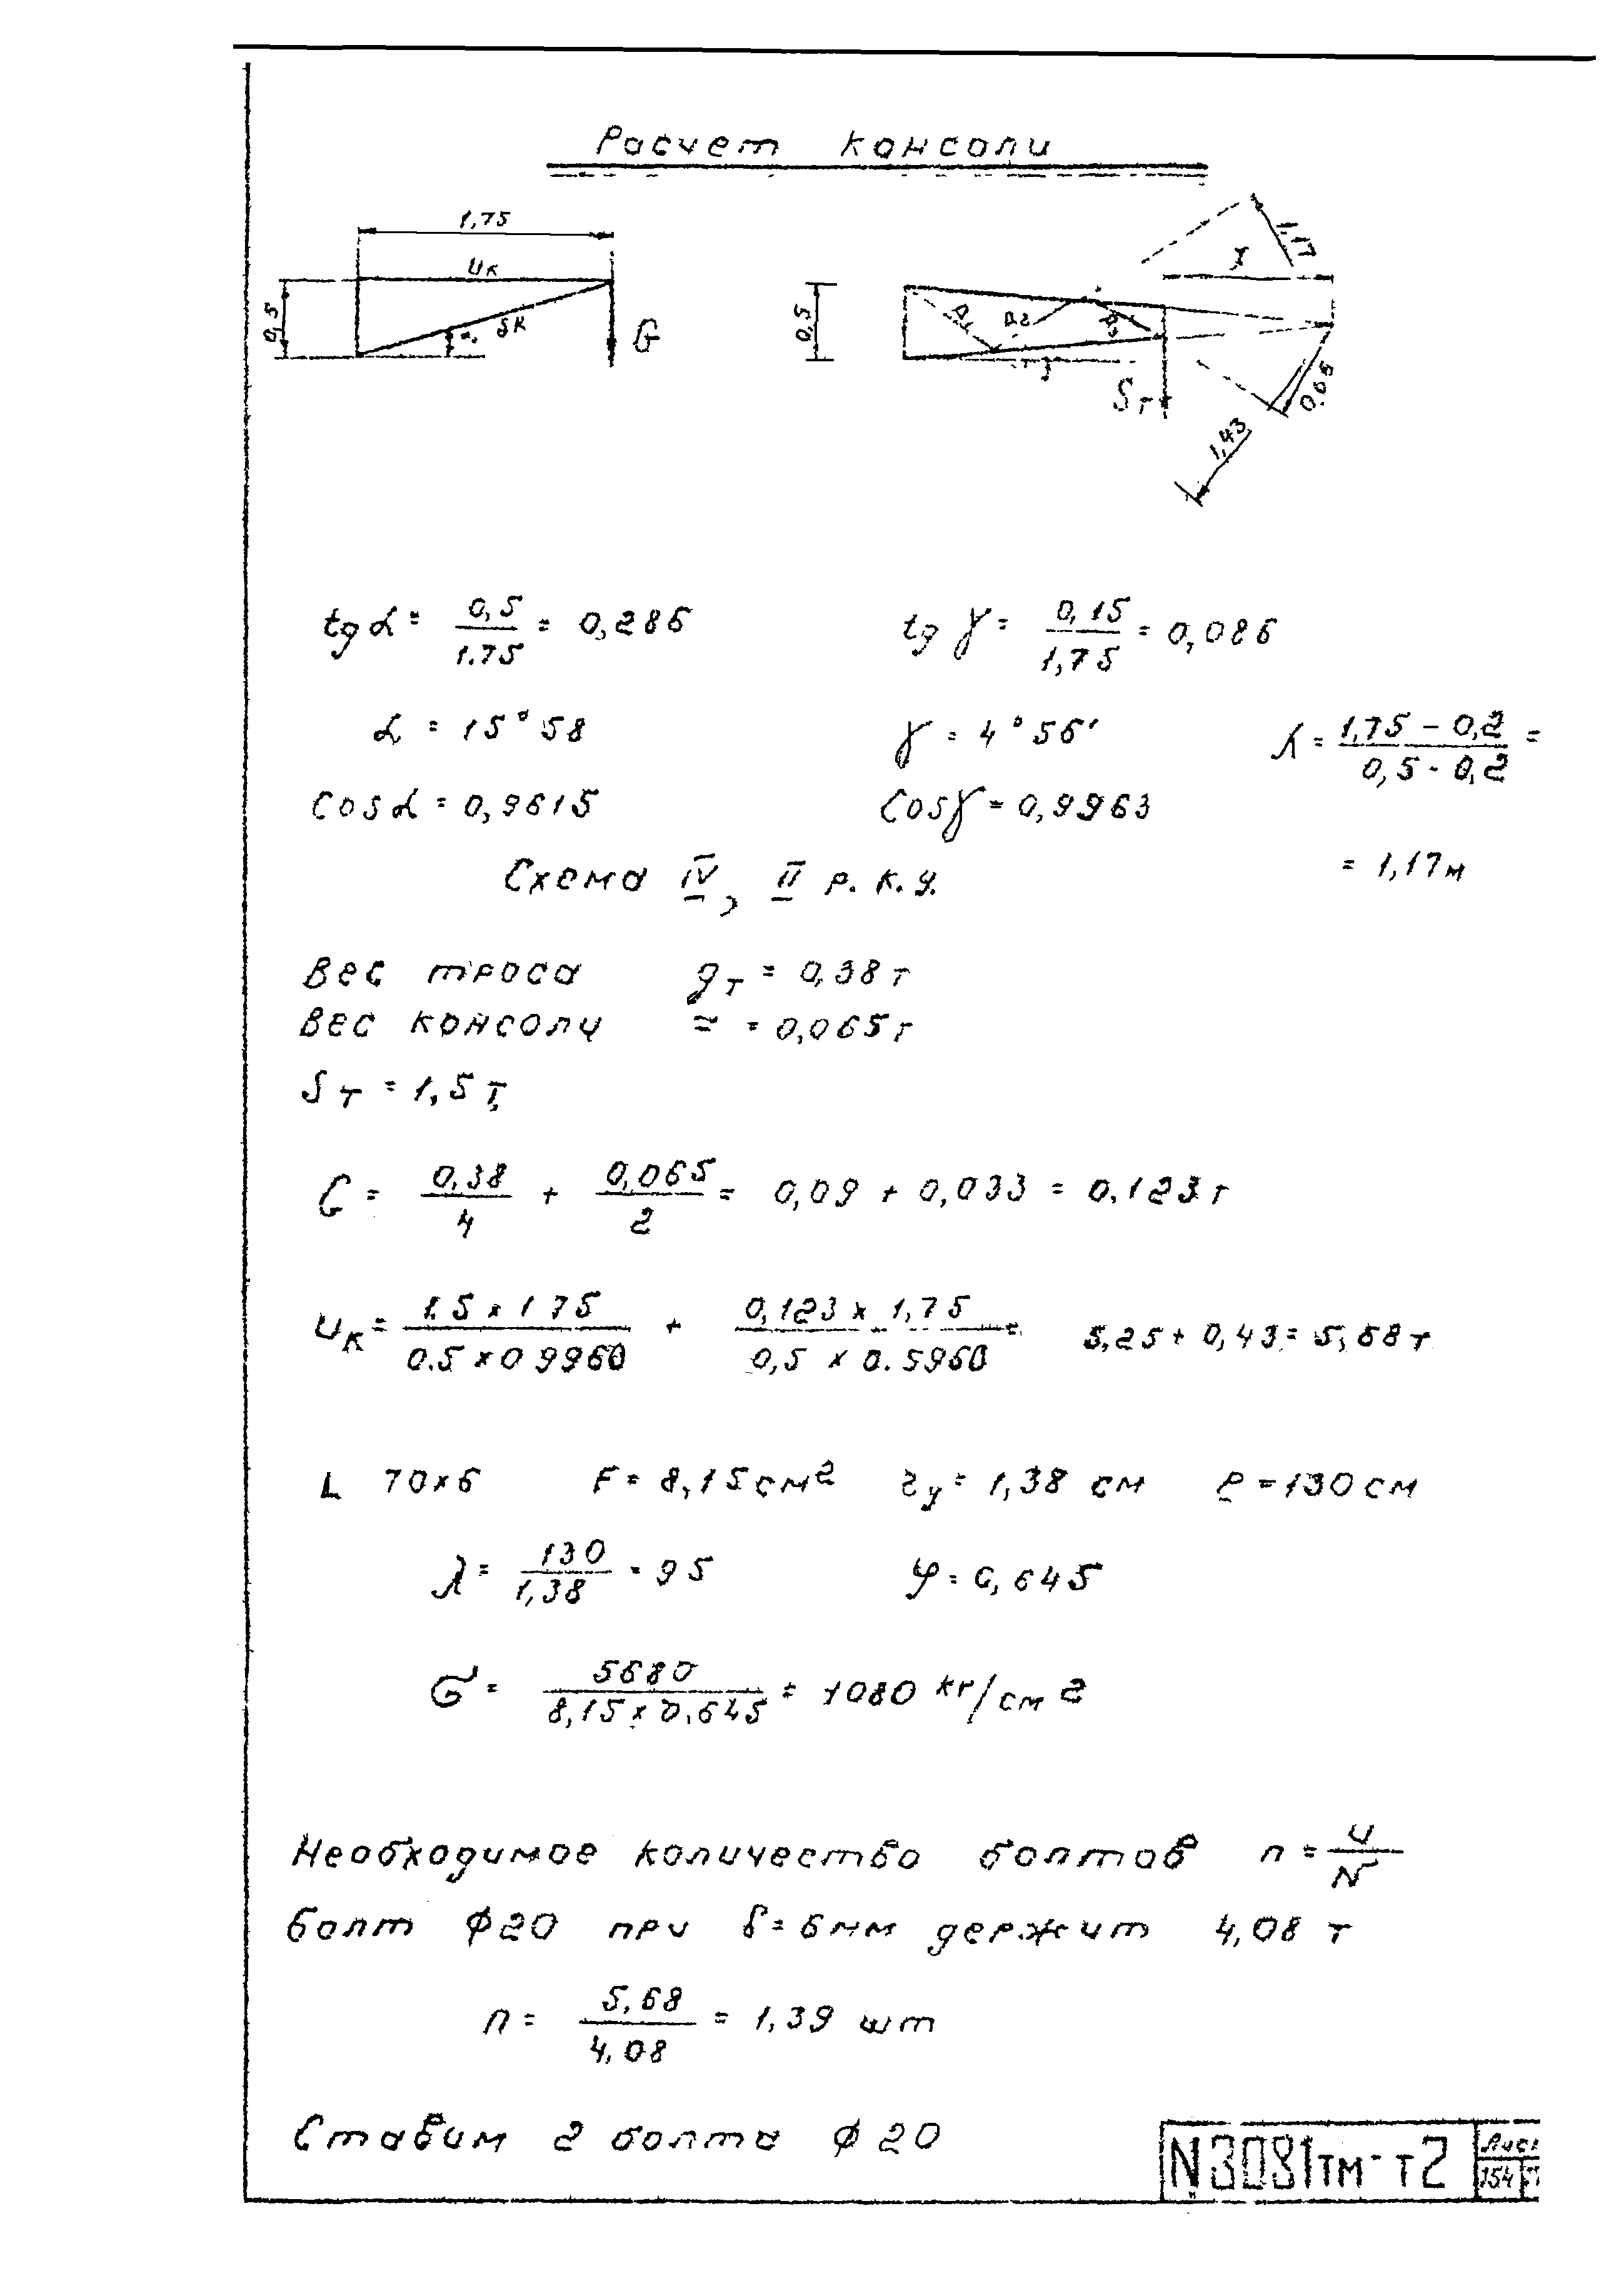 Расчет консоли
1,75
Uк
0,5
α
Sк
G
0,5
D1 D2 D3
γ
Sт
X
1,17
0,65
1,43
tg α = 0,5 / 1.75 = 0,286
tg γ = 0,15 / 1,75 = 0,086
α = 15°58
γ = 4°56'
X = 1,75 - 0,2 / 0,5 - 0,2 =
cos α = 0,9615
cos γ = 0,9963
= 1,17м
Схема IV, II р.к.у.
Вес троса gт = 0,38т
Вес консоли ≃ = 0,065т
Sт = 1,5т,
G = 0,38 / 4 + 0,065 / 2 = 0,09 + 0,033 = 0.123т
Uк = 1.5 x 1 75 / 0.5 x 0 9960 + 0,123 x 1,75 / 0,5 x 0.5960 = 5,25 + 0,43 = 5,68т
L 70x6 F = 8,15см² ry = 1,38 см ℓ = 130см
λ = 130 / 1,38 = 95 φ = 0,645
σ = 5680 / 8,15 x 0.645 = 1080 кг/см2
Необходимое количество болтов n = U / N
болт φ20 при δ = 6мм держит 4,08 т
n = 5,68 / 4,08 = 1,39 шт
Ставим 2 болта φ20
N3081тм-т2
Лис
154